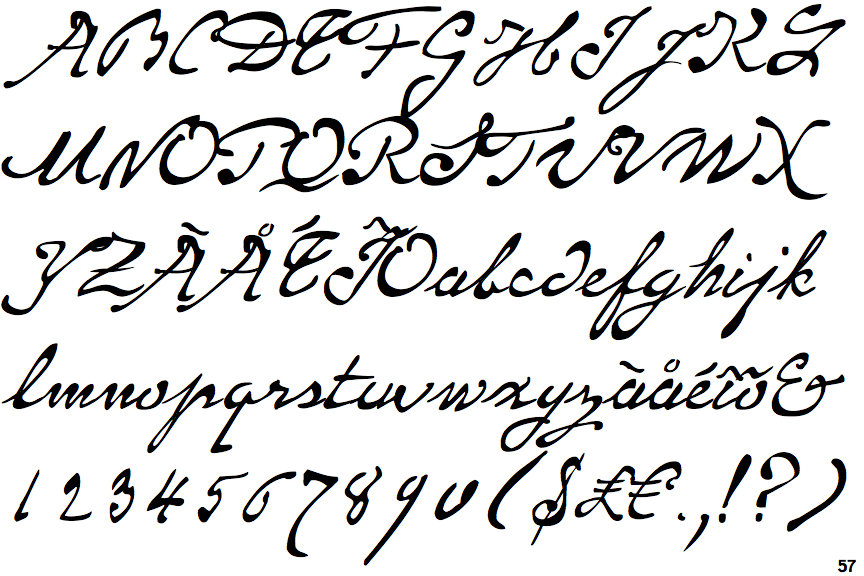 ABCDEFGHIJKL
MNOPQRSTUVWX
YZÃÅÉÎÕabcdefghijk
lmnopqrstuvwxyzãåéîõ&
1234567890($££.,!?)
57